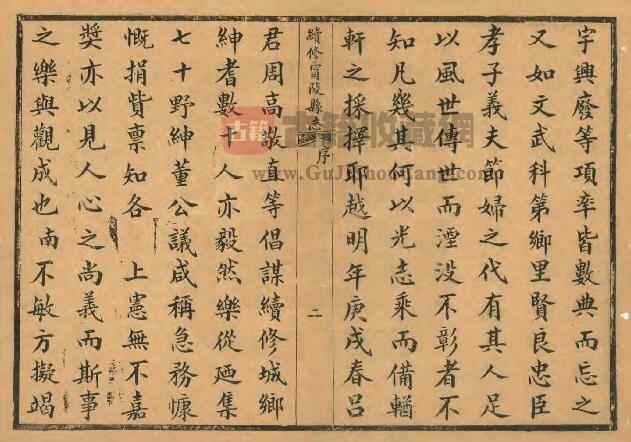 字興廢等項率皆數典而忘之
又如文武科第鄉里賢良忠臣
孝子義夫節婦之代有其人足
以風世傳世而湮没不彰者不
知凡幾其何以光志乘而備輶
軒之採擇耶越明年庚戌春呂
續修甯陵縣志 序 二
君周高敬直等倡謀續修城鄉
紳耆數十人亦毅然樂從廼集
七十野紳董公議咸稱急務慷
慨捐貲禀知各 上憲無不嘉
奬亦以見人心之尚義而斯事
之樂與觀成也南不敏方擬竭
古籍
古籍收藏网